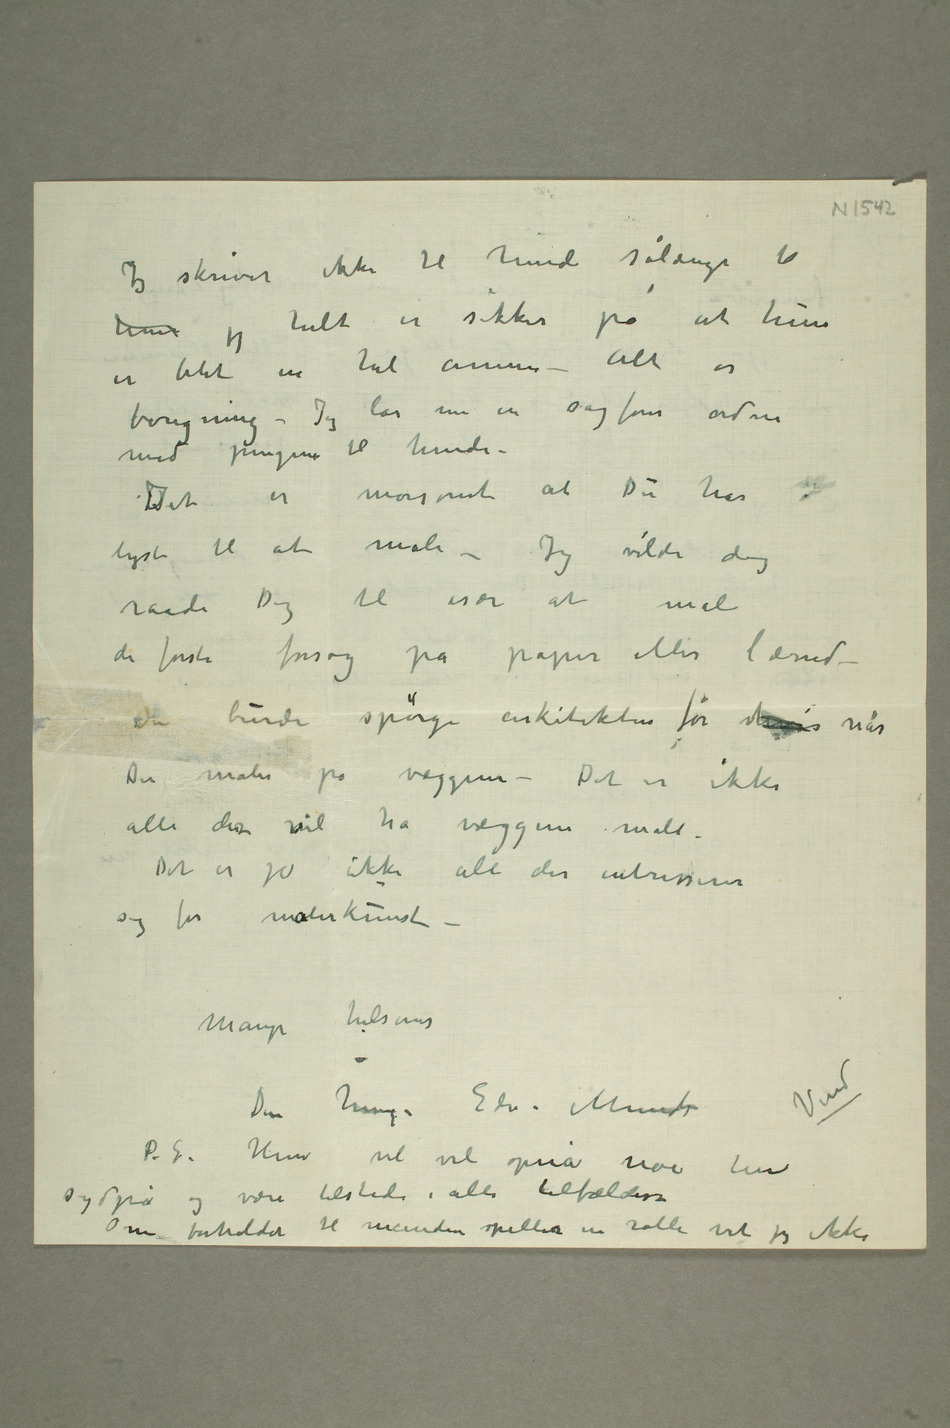 N 1542
Jeg skriver ikke til hende sålænge to
hun jeg helt er sikker på at hun
er blet en hel annen – Alt er
borgning – Jeg lar nu en sagfører ordne
med pengene til hende –
Det er morsomt at Du har
lyst til at male – Jeg vilde dog
raade Dig til især at male
de første forsøg på papir eller lærred –
Du burde spørge arkitekten før når
Du maler på væggene – Det er ikke
alle der vil ha væggene malt –
Det er jo ikke alle der intresserer
sig for malerkunst –
Mange hilsener
Din heng. Edv. Munch
Vend
P.S. Hun vil vel opnå noe her
sydpå og være tilstede i alle tilfælder
Om forholdet til manden spiller en rolle vet jeg ikke